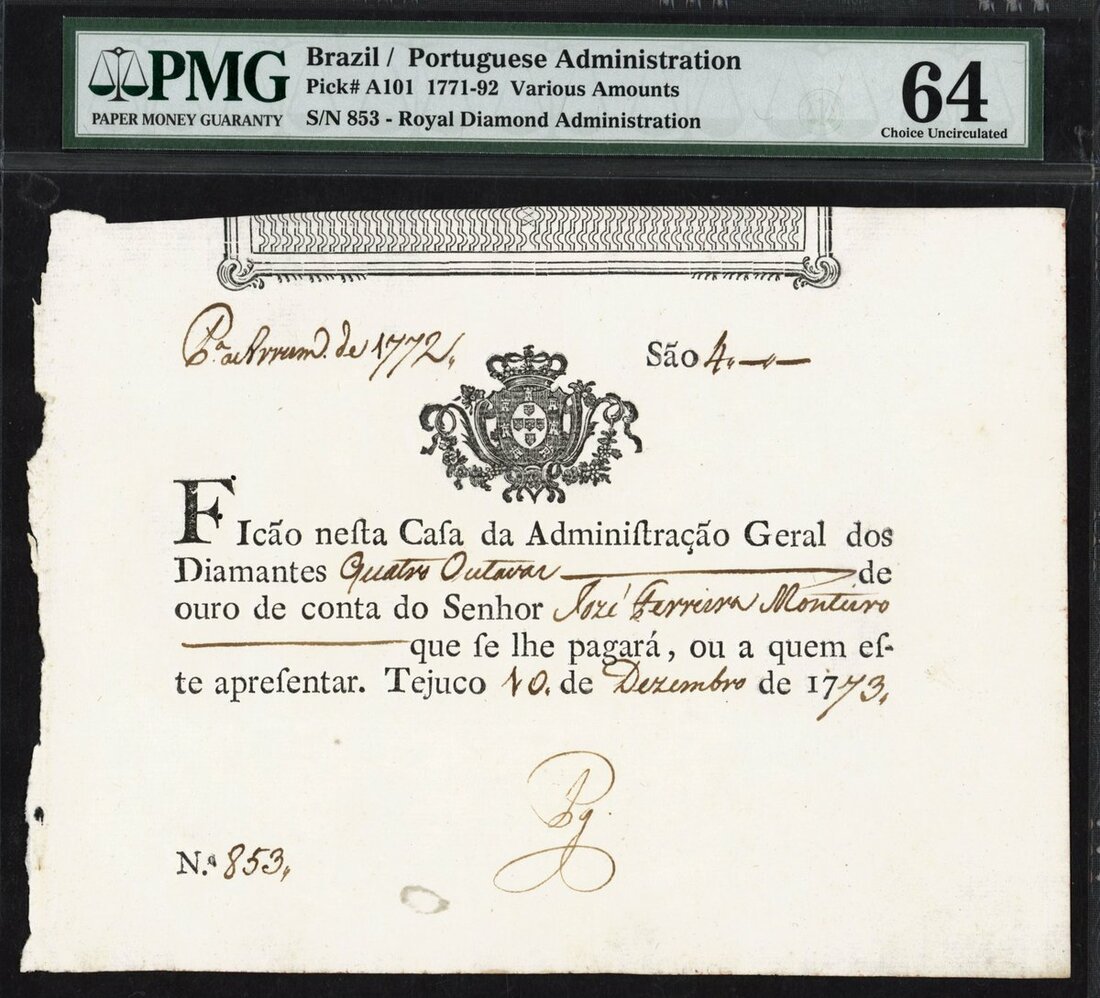 PMG
PAPER MONEY GUARANTY
Brazil / Portuguese Administration
Pick# A101 1771-92 Various Amounts
S/N 853 - Royal Diamond Administration
64
Choice Uncirculated
de 1772.
São 4.
FIcão neſta Caſa da Adminiſtração Geral dos
Diamantes Quatro Outavas de
ouro de conta do Senhor Jozé Ferreira Monteiro
que ſe lhe pagará, ou a quem eſ-
te apreſentar. Tejuco 10. de Dezembro de 1773.
N.º 853.